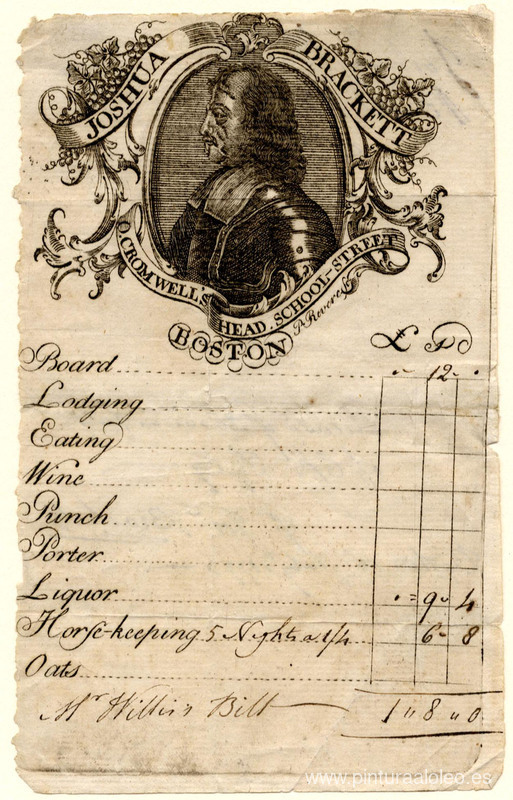 JOSHUA BRACKETT
O. CROMWELL'S HEAD, SCHOOL-STREET
P. Revere
BOSTON
£ s d
Board 12
Lodging
Eating
Wine
Punch
Porter
Liquor 9 4
Horſe-keeping 5 Nights a 1/4 6 8
Oats
Mr Willis's Bill 1 " 8 " 0
www.pinturaaloleo.es